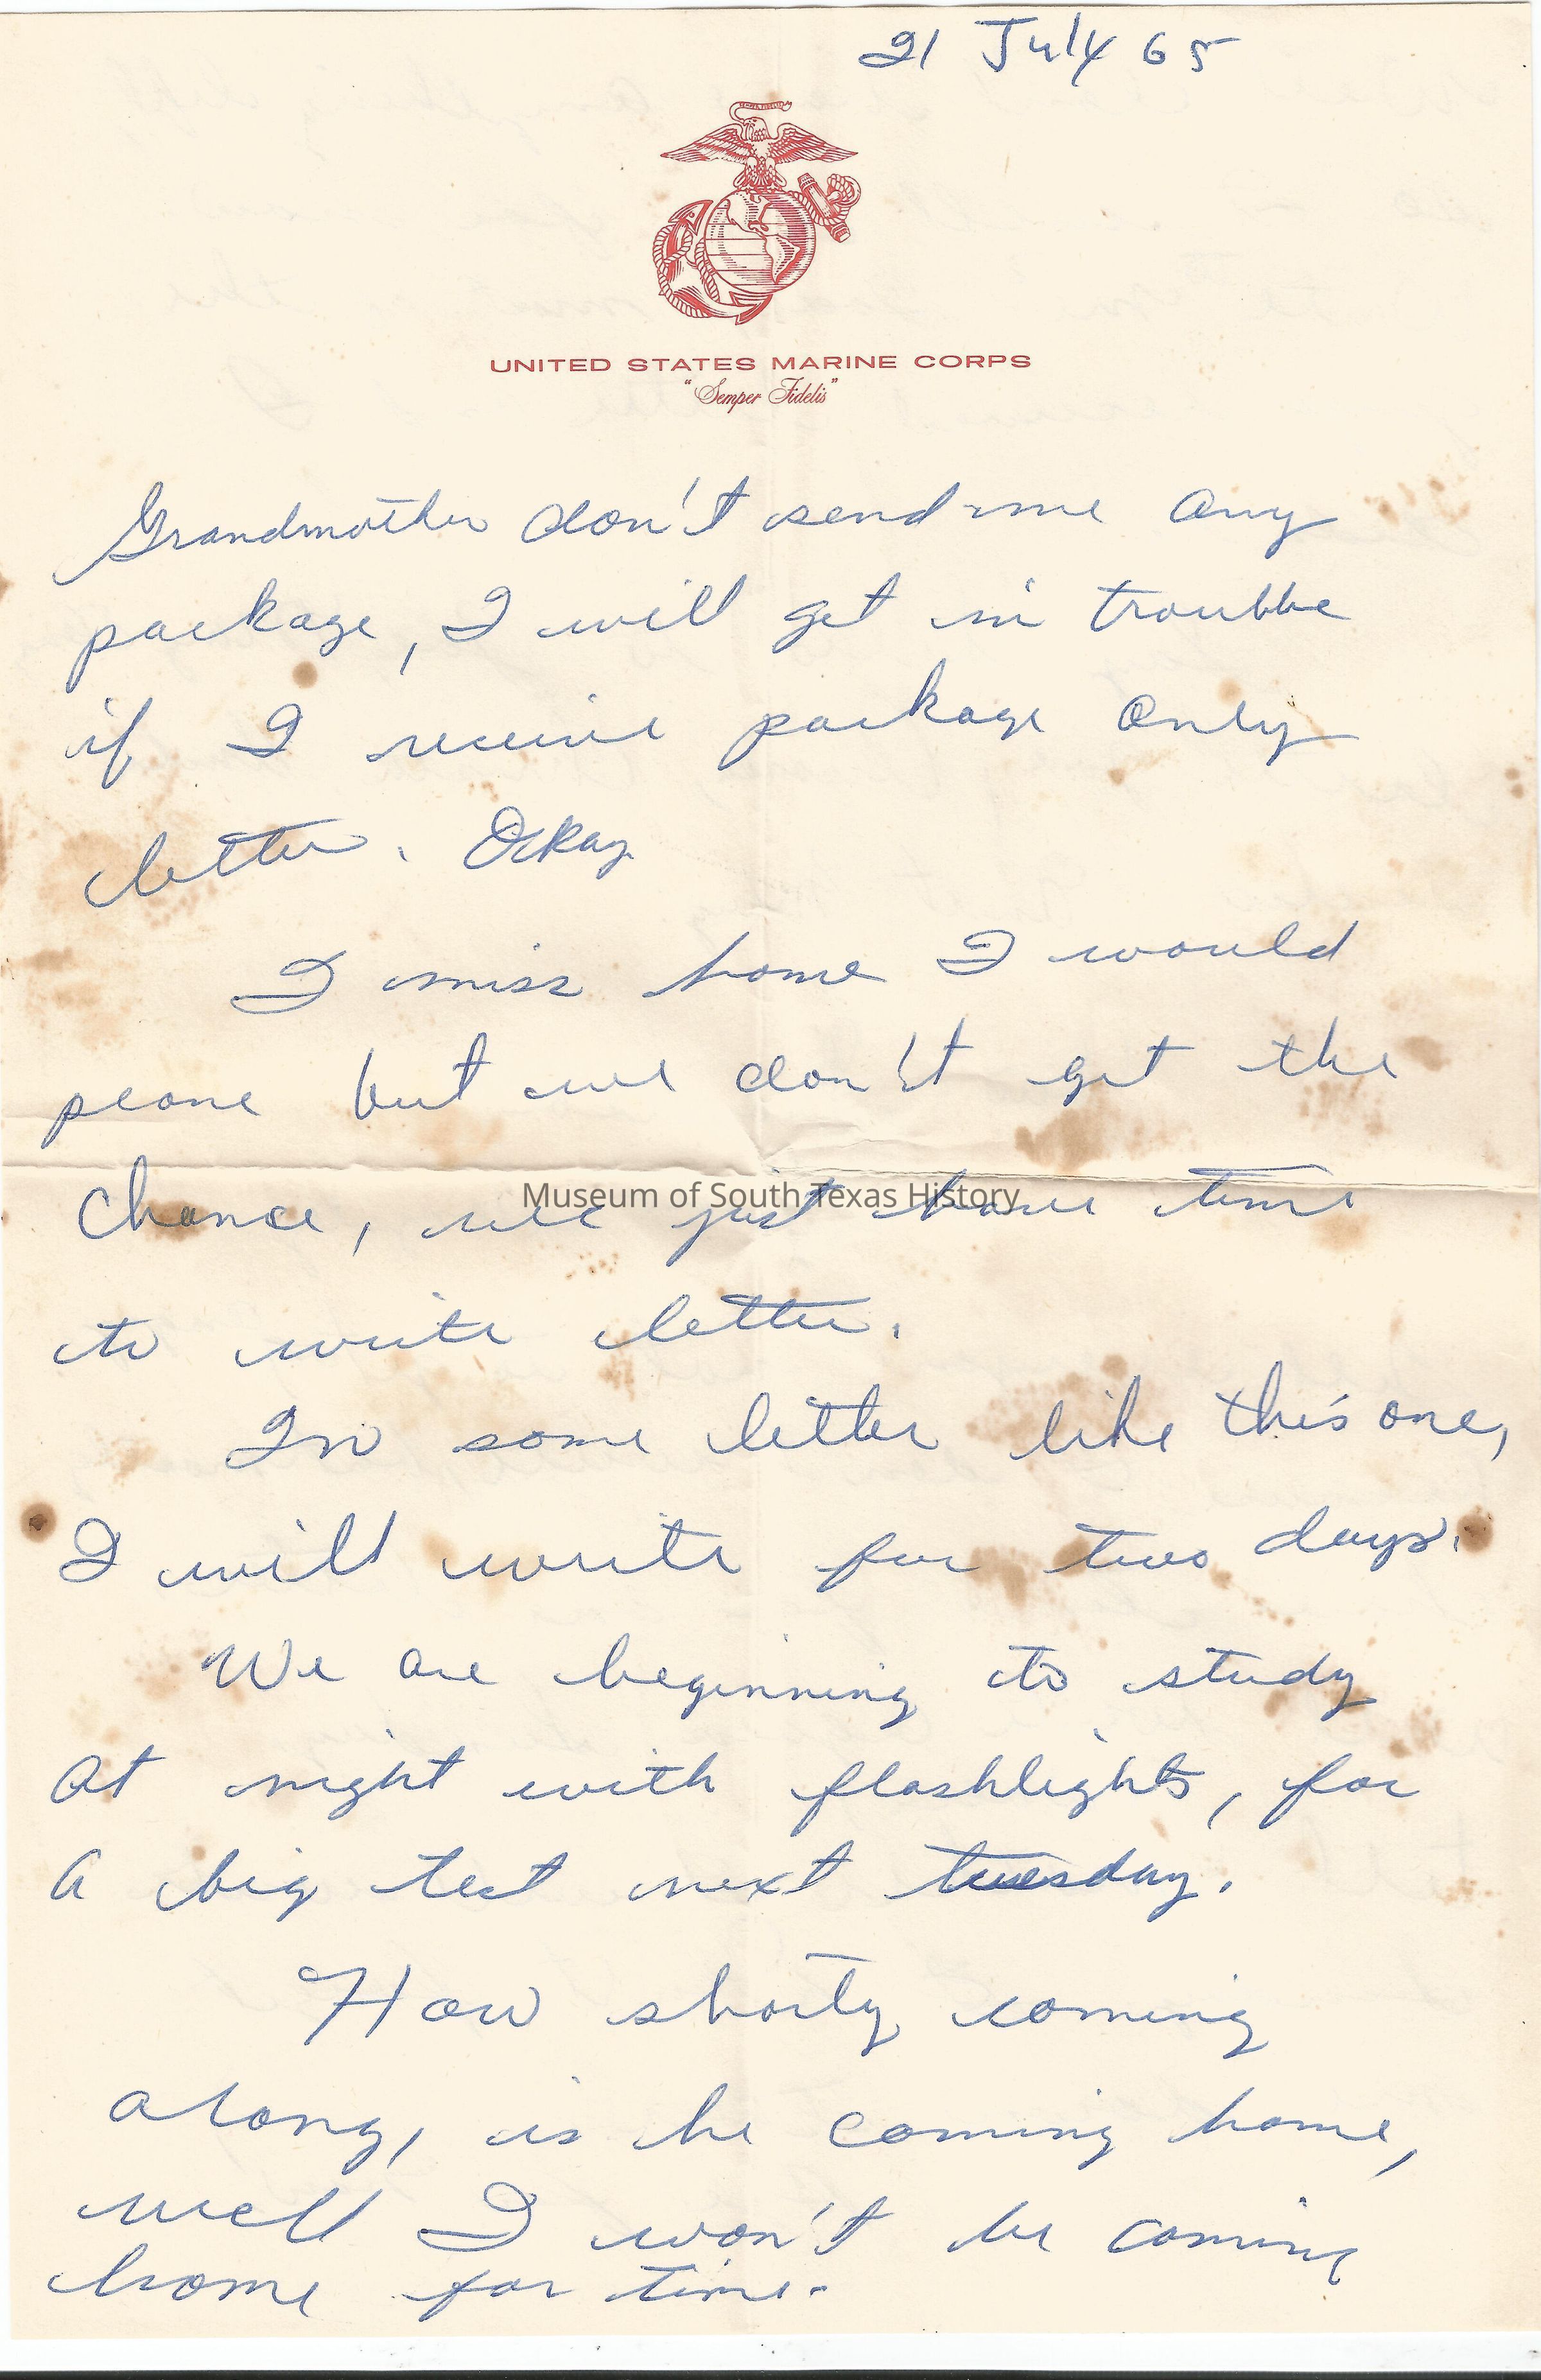 21 July 65
UNITED STATES MARINE CORPS
"Semper Fidelis"
Grandmother don't send me any
package, I will get in troubbe
if I receive package only
letter. Ockay
I miss home I would
peone but we don't get the
chance, we just have time
Museum of South Texas History
to write letter.
In some letter like this one,
I will write for two days.
We are beginning to study
at night with flashlights, for
a big test next tuesday.
How shorty coming
along, is he coming home,
well I won't be coming
home for time.